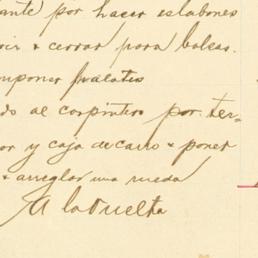 ante por hacer eslabones
ir & cerrar para balsas.
mponer
do al carpintero por ter-
or y caja de carro & poner
& arreglar una rueda
A la Vuelta